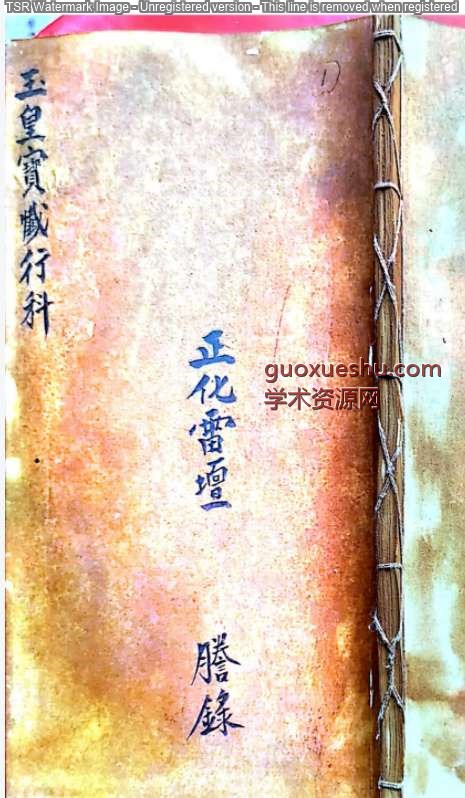 TSR Watermark Image - Unregistered version - This line is removed when registered
1)
玉皇寶懺行科
正化雷壇
謄錄
guoxueshu.com
学术资源网